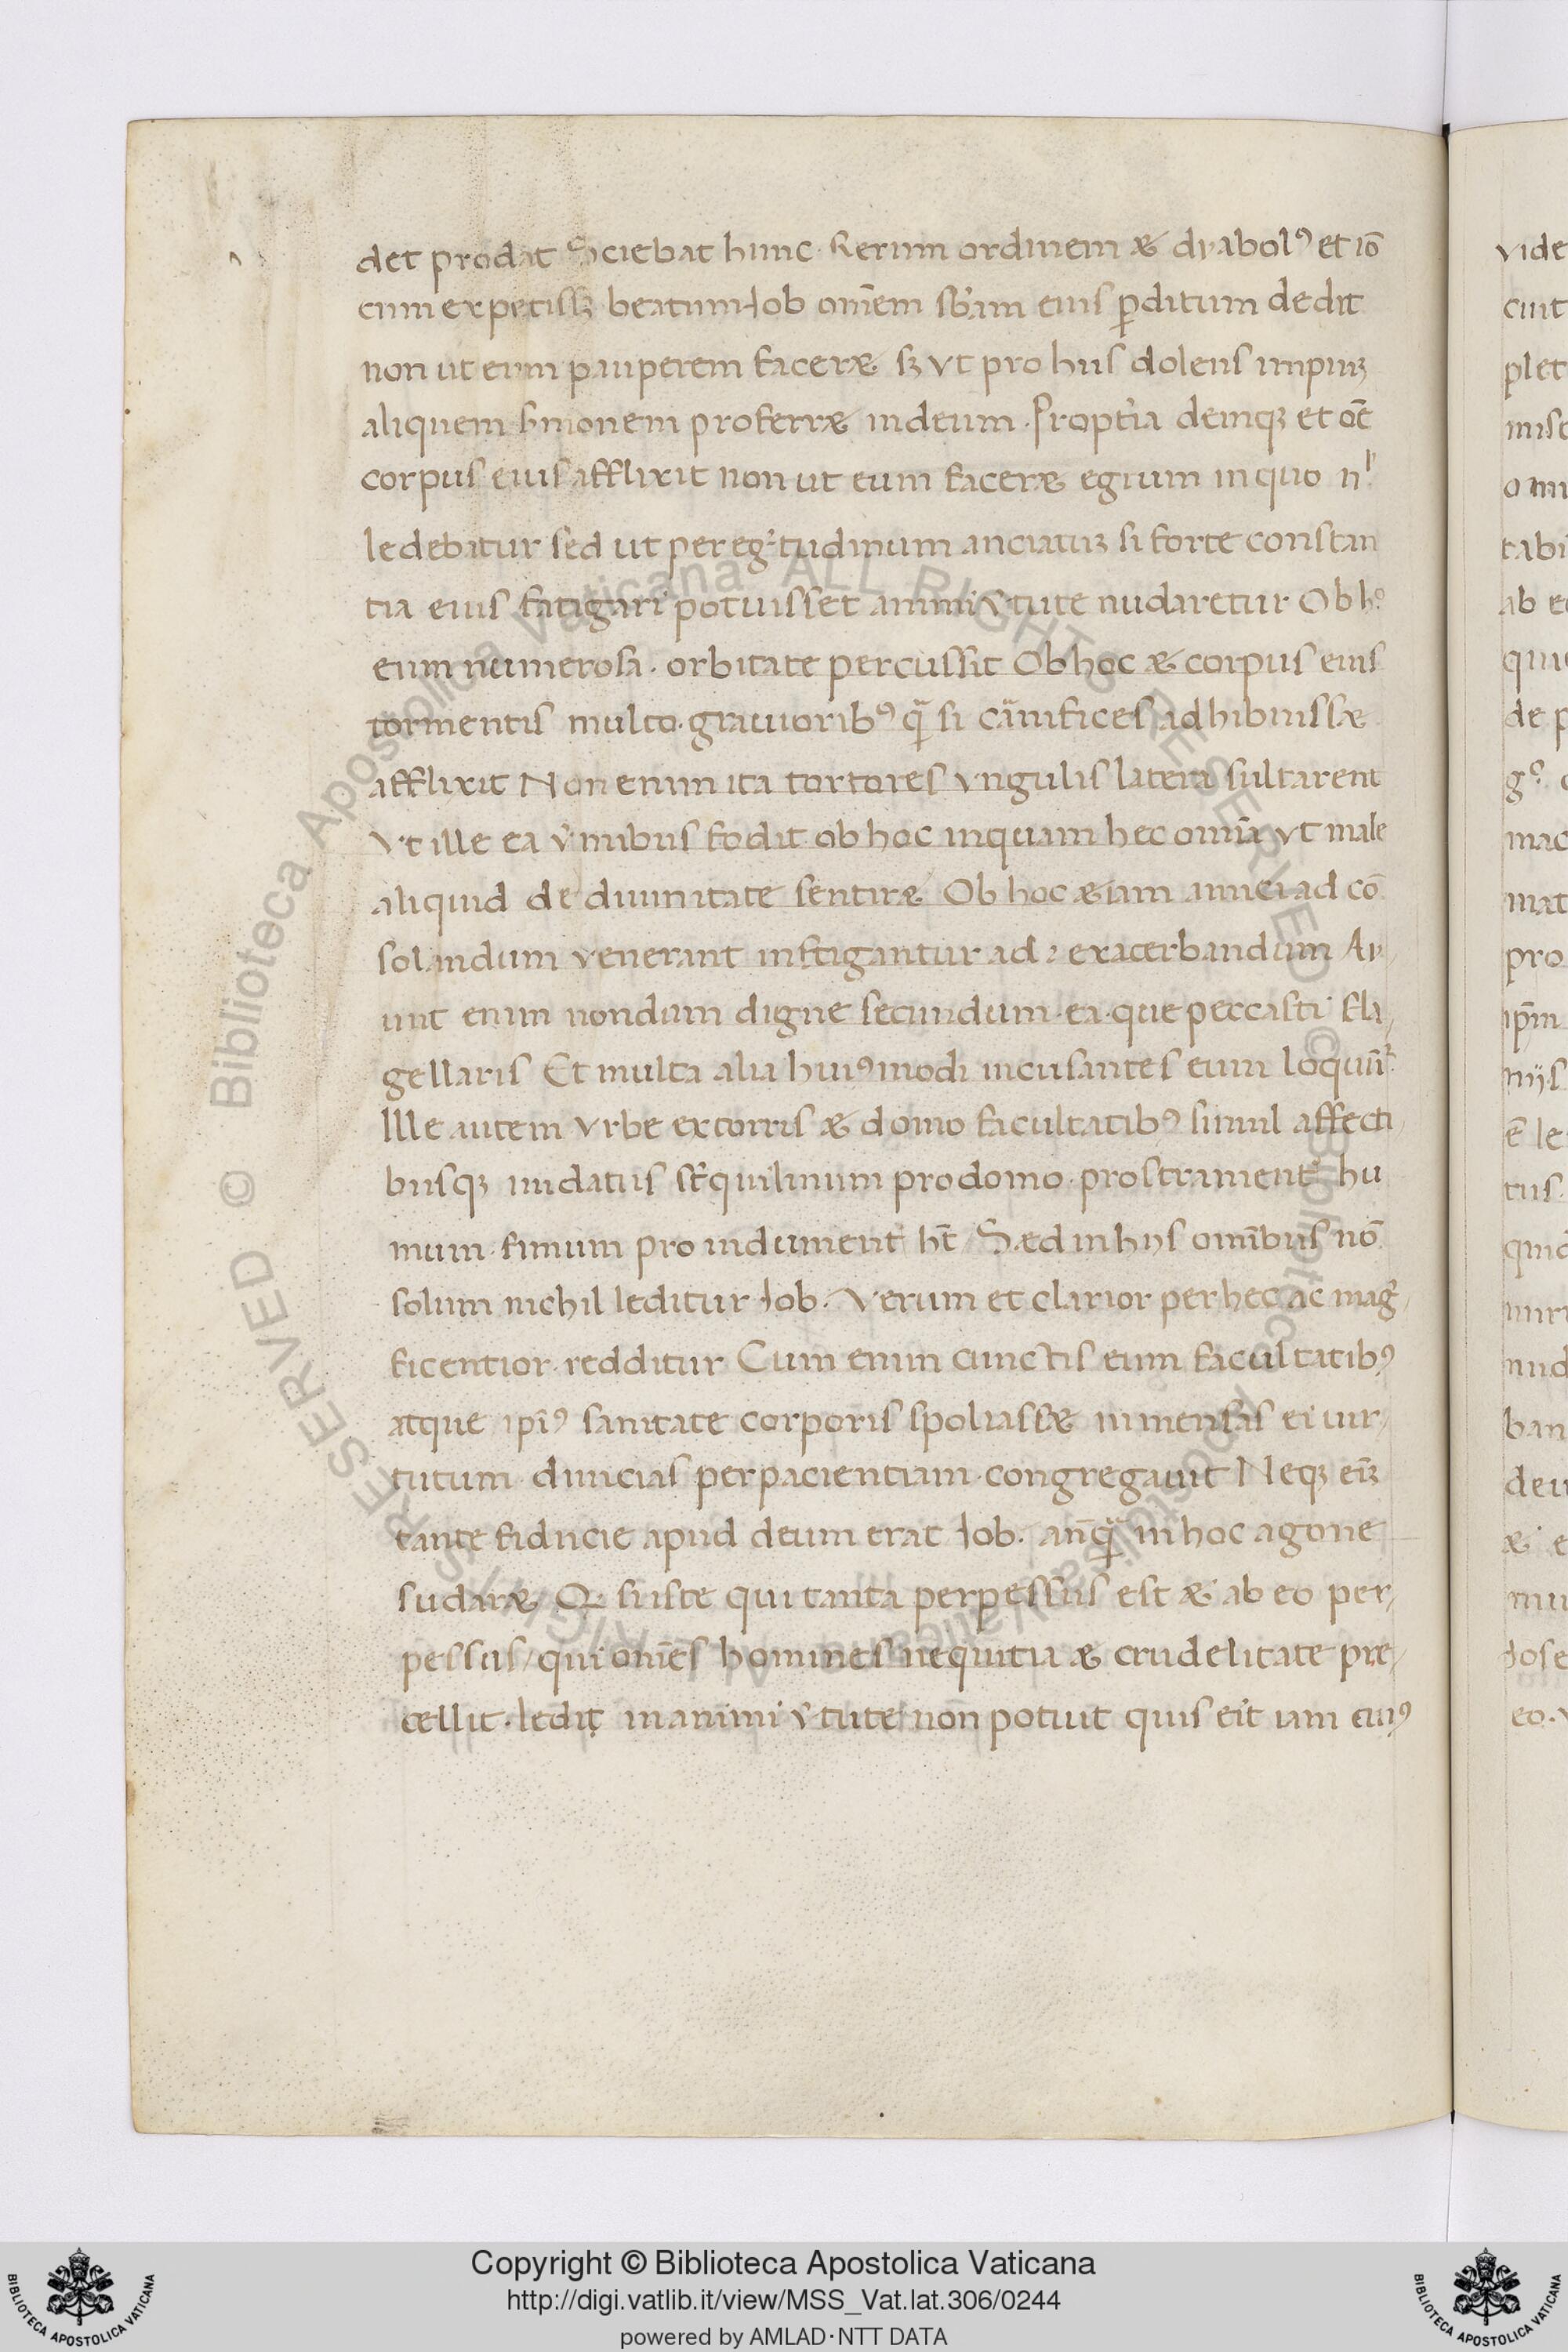 det prodat Sciebat hunc. Rerum ordinem & dyabolꝰ et iō
cum expetissꝫ beatum Iob om̄em sb̄am eius ꝑditum dedit
non ut eum pauperem facer& sꝫ vt pro hiis dolens impiuꝫ
aliquem s̄monem proferr& in deum. Propt̄ia deniqꝫ et oē
corpus eius afflixit non ut eum facer& egrum in quo n
ledebatur sed ut per eg tudinum anciatuꝫ si forte constan
tia eius fatigari potuisset animi v̄tute nudaretur Ob h
eum numerosa. orbitate percussit Ob hoc & corpus eius
tormentis multo. grauioribꝰ q̄ si carnifices adhibuiss&
afflixit Non enim ita tortores vngulis latera sultarent
Vt ille ea v̄mibus fodit ob hoc inquam hec omīa vt male
aliquid de diuinitate sentir& Ob hoc &iam amici ad cō
solandum venerant instigantur ad exacerbandum Ai
unt enim nondum digne secundum. ea. que peccasti fla
gellaris Et multa alia huiꝰmodi incusantes eum loquūt
Ille autem vrbe extorris & domo facultatibꝰ simul affecti
busqꝫ nudatus st̄quilinium pro domo. pro strament hu
mum. fimum pro indument h̄t S&d in hijs omībus nō
solum nichil leditur Iob. Verum et clarior per hec ac mag
ficentior. redditur Cum enim cunctis eum facultatibꝰ
atque ip̄iꝰ sanitate corporis spoliass& inmensas ei uir
tutum. diuicias per pacienciam. congregauit Neqꝫ eīꝫ
tante fiducie apud deum erat Iob. anq̄ in hoc agone
sudar& Q si iste qui tanta perpessus est & ab eo per
pessus/ qui om̄es homines nequitia & crudelitate pre
cellit. ledi in animi v̄tute non potuit quis erit iam cuiꝰ
vide
cuit
plet
mise
omi
tabi
ab e
qui
de p
g
mac
mat
pro
ip̄m
nijs
ē le
tus.
quid
miri
nud
ban
deu
& e
mu
Iose
eo. v
© Biblioteca Apostolica Vaticana ALL RIGHTS RESERVED
© Biblioteca Apostolica Vaticana ALL RIGHTS RESERVED
Copyright © Biblioteca Apostolica Vaticana
http://digi.vatlib.it/view/MSS_Vat.lat.306/0244
powered by AMLAD·NTT DATA
BIBLIOTECA APOSTOLICA VATICANA
BIBLIOTECA APOSTOLICA VATICANA